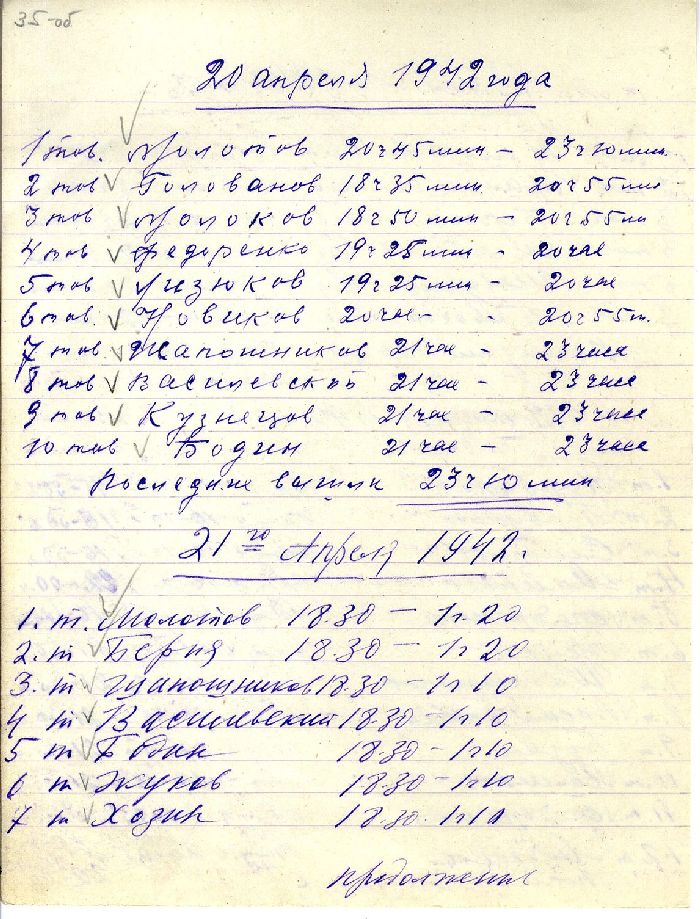 35-об
20 апреля 1942 года
1 тов. Молотов 20ч 45 мин – 23ч 10 мин.
2 тов Голованов 18ч 35 мин 20ч 55 мин
3 тов Молоков 18ч 50 мин – 20ч 55 м
4 тов Федоренко 19ч 25 мин – 20 час
5 тов Лизюков 19ч 25 мин – 20 час
6 тов. Новиков 20 час – 20ч 55 м.
7 тов Шапошников 21 час – 23 часа
8 тов Василевский 21 час – 23 часа
9 тов Кузнецов 21 час – 23 часа
10 тов Бодин 21 час – 23 часа
Последние вышли 23ч 10 мин
21го Апреля 1942 г.
1. т. Молотов 18.30 – 1ч. 20
2. т Берия 18.30 – 1ч 20
3. т Шапошников 18.30 – 1ч 10
4 т Василевский 18.30 – 1ч 10
5 т Бодин 18.30 – 1ч 10
6 т Жуков 18.30 – 1ч 10
7 т Хозин 18.30 - 1ч 10
продолжение